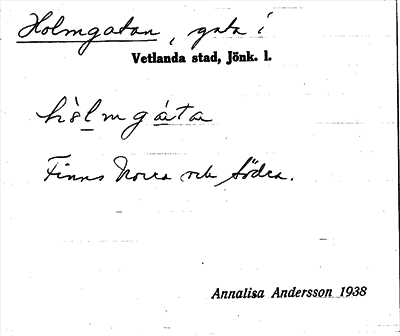 Holmgatan, gata i
Vetlanda stad, Jönk. l.
hòlmgáta
Finns Norra och Södra.
Annalisa Andersson 1938